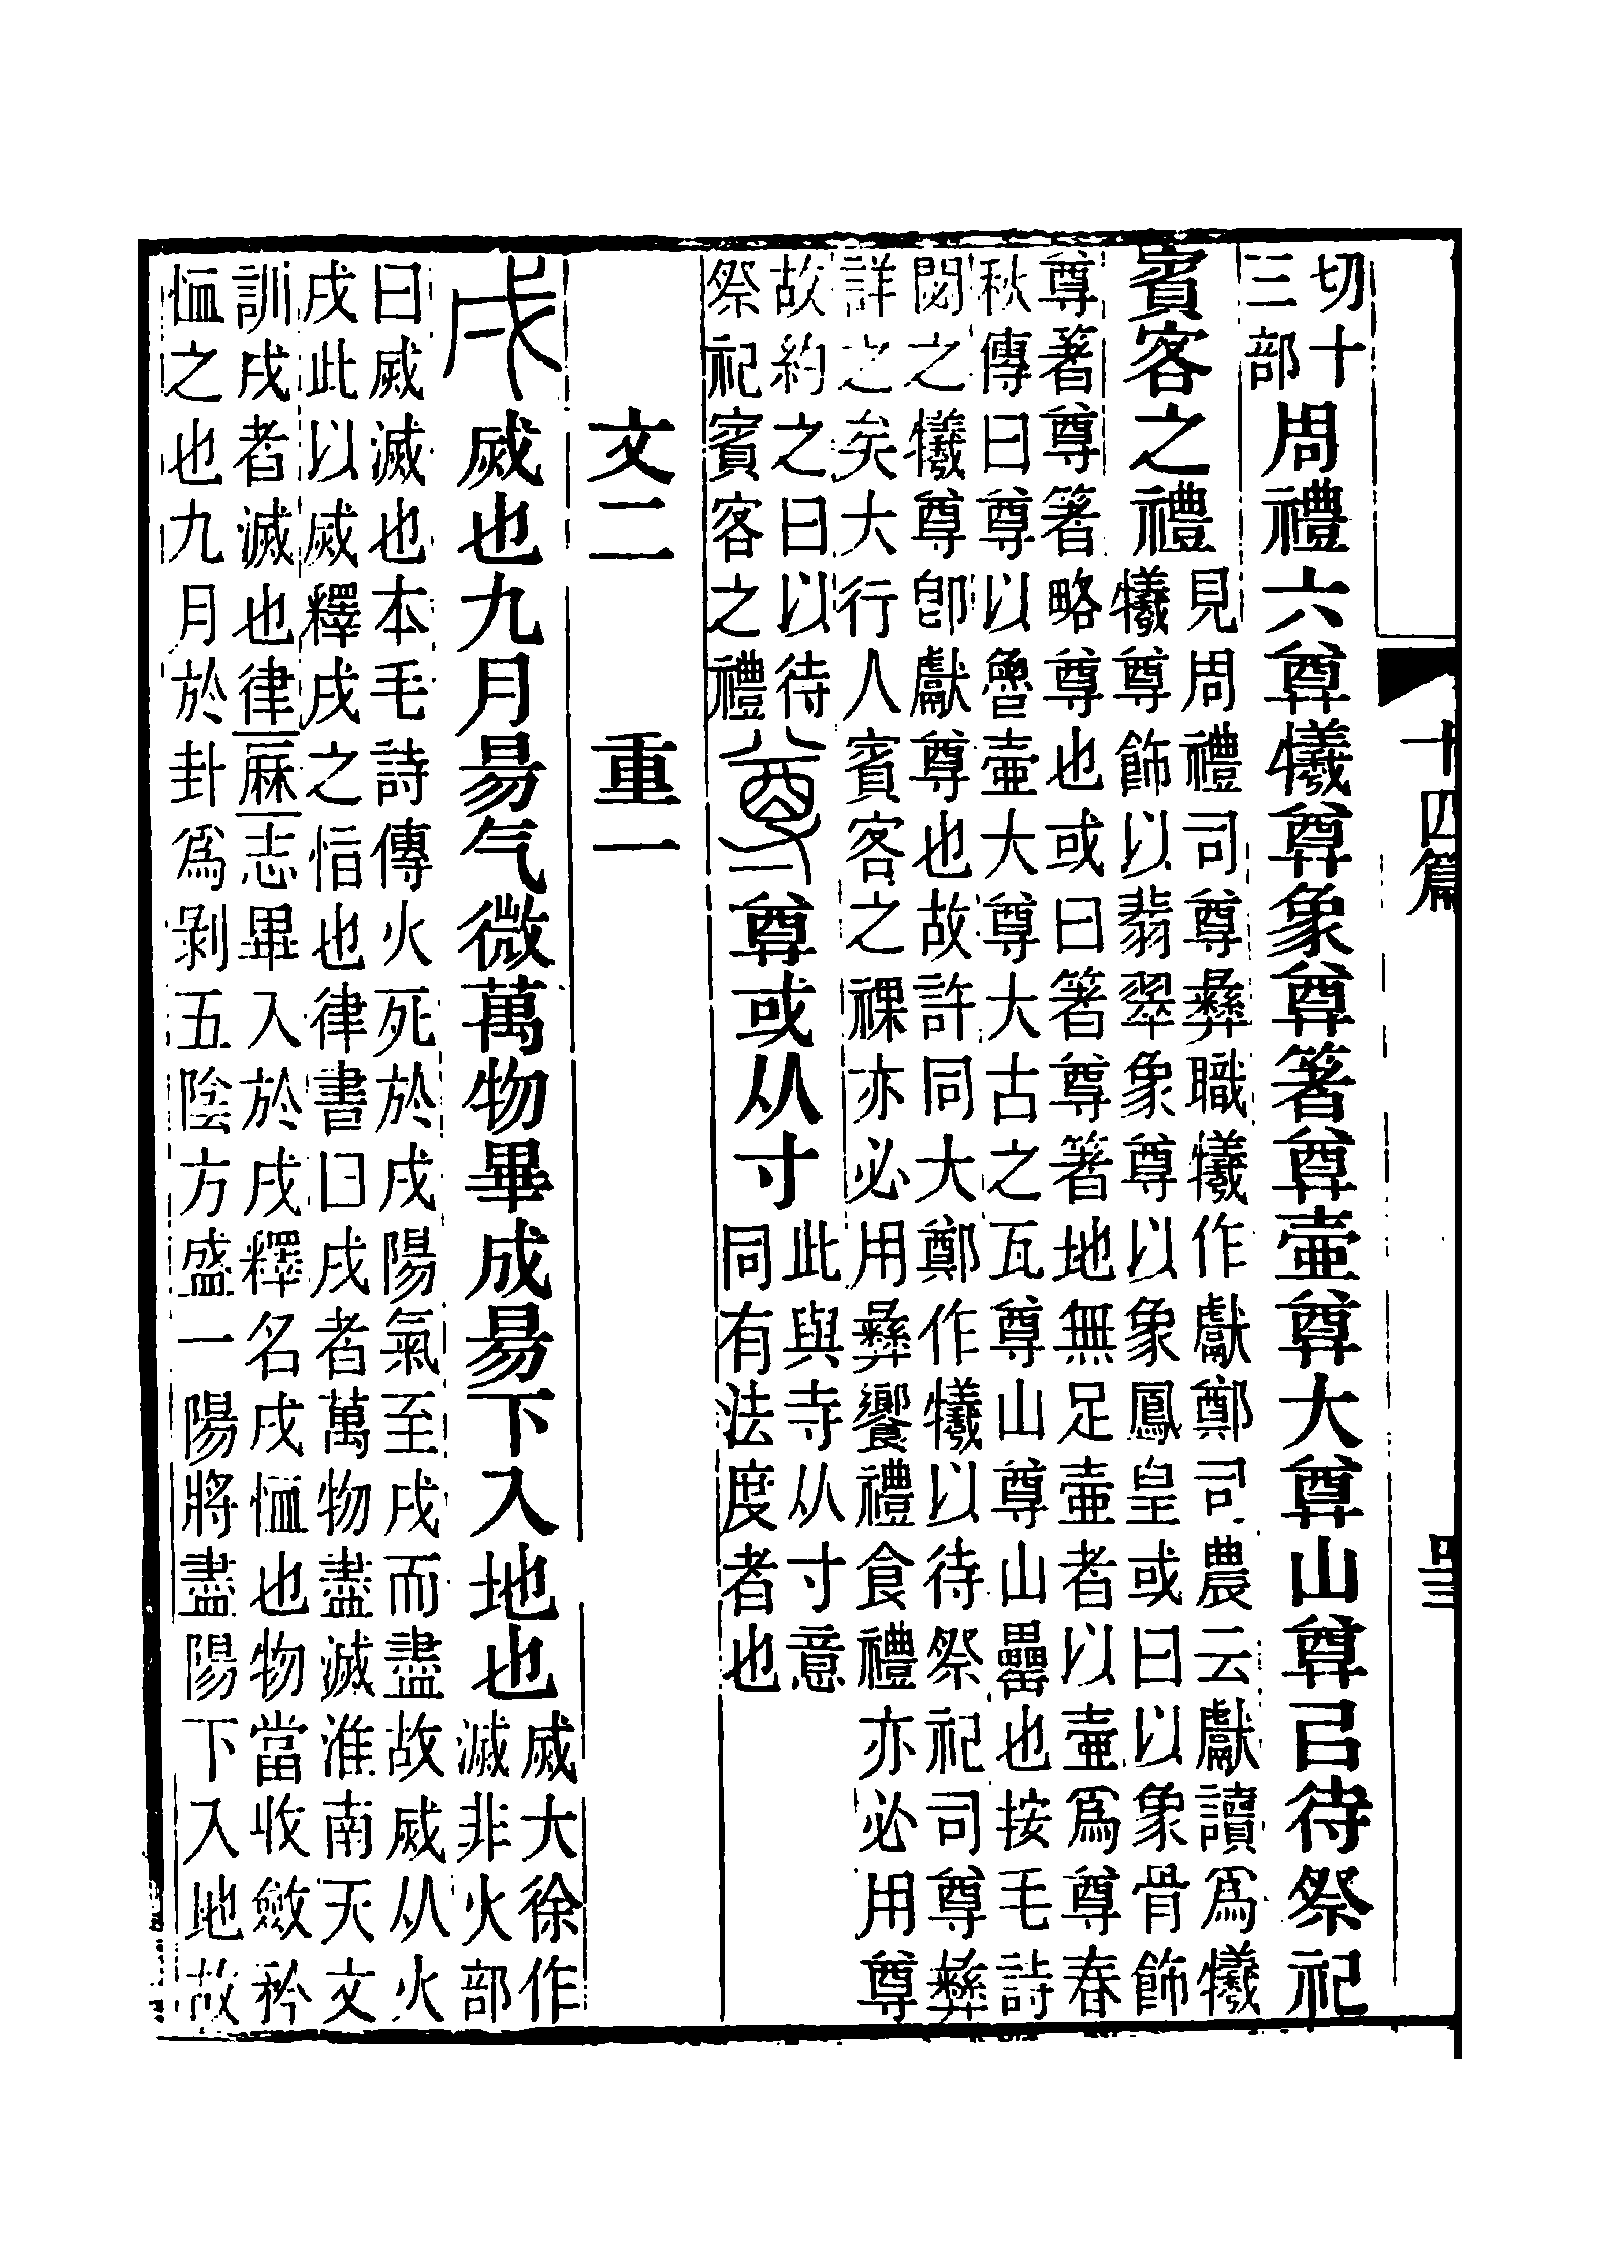 十四篇
切十
三部
周禮六尊犧尊象尊箸尊壷尊大尊山尊㠯待祭祀
賓客之禮
見周禮司尊彝職犧作獻鄭司農云獻讀爲犧
犧尊飾以翡翠象尊以象鳳皇或曰以象骨飾
尊箸尊箸略尊也或曰箸尊箸地無足壷者以壷爲尊春
秋傳曰尊以魯壷大尊大古之瓦尊山尊山罍也按毛詩
閟之犧尊卽獻尊也故許同大鄭作犧以待祭祀司尊彝
詳之矣大行人賓客之祼亦必用彝饗禮食禮亦必用尊
故約之曰以待
祭祀賓客之禮
尊尊或从寸
此與寺从寸意
同有法度者也
文二 重一
戌烕也九月昜气微萬物畢成昜下入地也
烕大徐作
滅非火部
曰烕滅也本毛詩傳火死於戌陽氣至戌而盡故烕从火
戌此以烕釋戌之恉也律書曰戌者萬物盡滅淮南天文
訓戌者滅也律厤志畢入於戌釋名戌恤也物當收斂矜
恤之也九月於卦爲剥五陰方盛一陽將盡陽下入地故